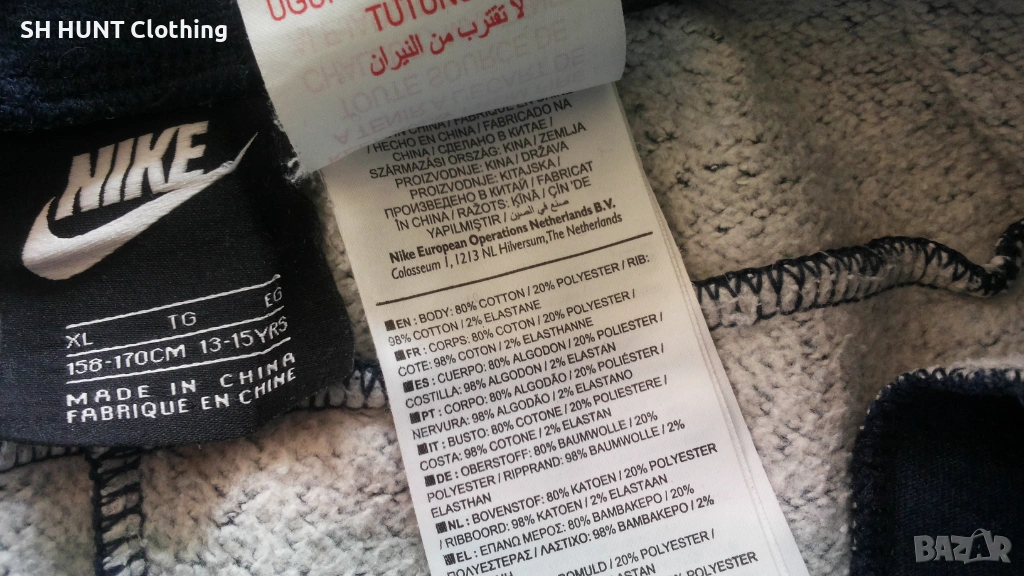 SH HUNT Clothing
TUTUN
لا تقترب من النيران
NIKE
XL TG EG
158-170CM 13-15YRS
MADE IN CHINA
FABRIQUE EN CHINE
/ HECHO EN CHINA / FABRICADO NA
CHINA / СДЕЛАНО В КИТАЕ /
SZÁRMAZÁSI ORSZÁG: KÍNA / ZEMLJA
PROIZVODNJE: KINA / DRŽAVA
PROIZVODNJE: KITAJSKA /
ПРОИЗВЕДЕНО В КИТАЙ / FABRICAT
IN CHINA / RAŽOTS: ĶĪNĀ / ÇİN'DE
YAPILMIŞTIR / صنع في الصين
Nike European Operations Netherlands B.V.
Colosseum 1, 1213 NL Hilversum, The Netherlands
EN : BODY: 80% COTTON / 20% POLYESTER / RIB:
98% COTTON / 2% ELASTANE
FR : CORPS: 80% COTON / 20% POLYESTER /
COTE: 98% COTON / 2% ELASTHANNE
ES : CUERPO: 80% ALGODON / 20% POLIESTER /
COSTILLA: 98% ALGODON / 2% ELASTAN
PT : CORPO: 80% ALGODÃO / 20% POLIÉSTER /
NERVURA: 98% ALGODÃO / 2% ELASTANO
IT : BUSTO: 80% COTONE / 20% POLIESTERE /
COSTA: 98% COTONE / 2% ELASTAN
DE : OBERSTOFF: 80% BAUMWOLLE / 20%
POLYESTER / RIPPRAND: 98% BAUMWOLLE / 2%
ELASTHAN
NL : BOVENSTOF: 80% KATOEN / 20% POLYESTER
/ RIBBOORD: 98% KATOEN / 2% ELASTAAN
EL : ΕΠΑΝΩ ΜΕΡΟΣ: 80% ΒΑΜΒΑΚΕΡΟ / 20%
ΠΟΛΥΕΣΤΕΡΑΣ / ΛΑΣΤΙΧΟ: 98% ΒΑΜΒΑΚΕΡΟ / 2%
BOMULD / 20% POLYESTER /
POLYESTER
BAZAR